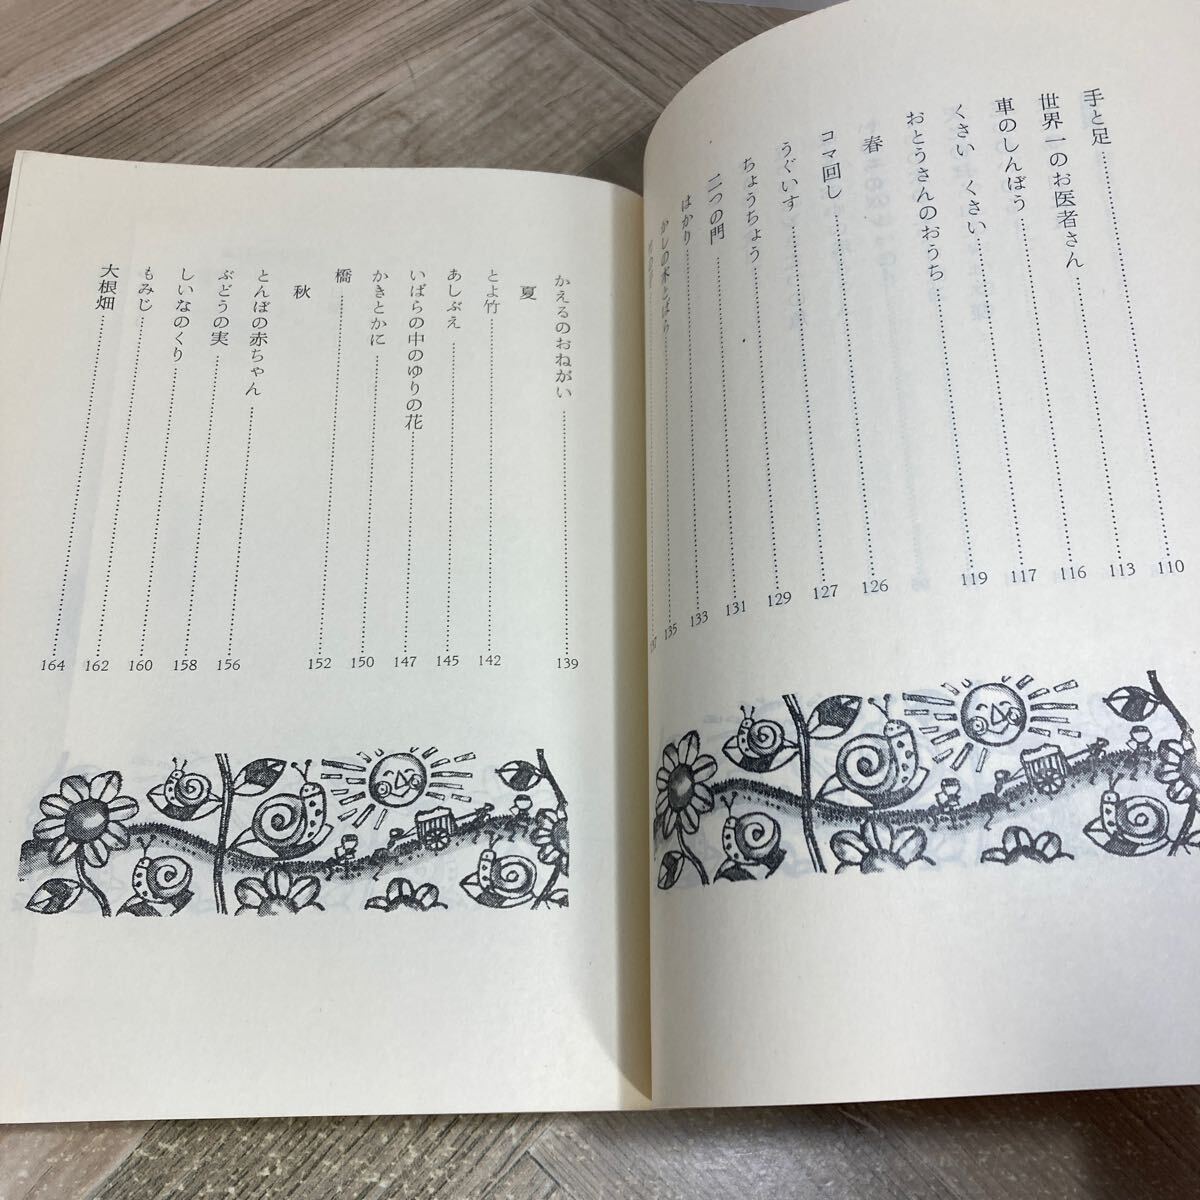 手と足……………110
世界一のお医者さん……………113
車のしんぼう……………116
くさい くさい……………117
おとうさんのおうち……………119
春
コマ回し……………126
うぐいす……………127
ちょうちょう……………129
二つの門……………131
はかり……………133
かしの木とばら……………135
……………137
かえるのおねがい……………139
夏
とよ竹……………142
あしぶえ……………145
いばらの中のゆりの花……………147
かきとかに……………150
橋……………152
秋
とんぼの赤ちゃん……………156
ぶどうの実……………158
しいなのくり……………160
もみじ……………162
大根畑……………164